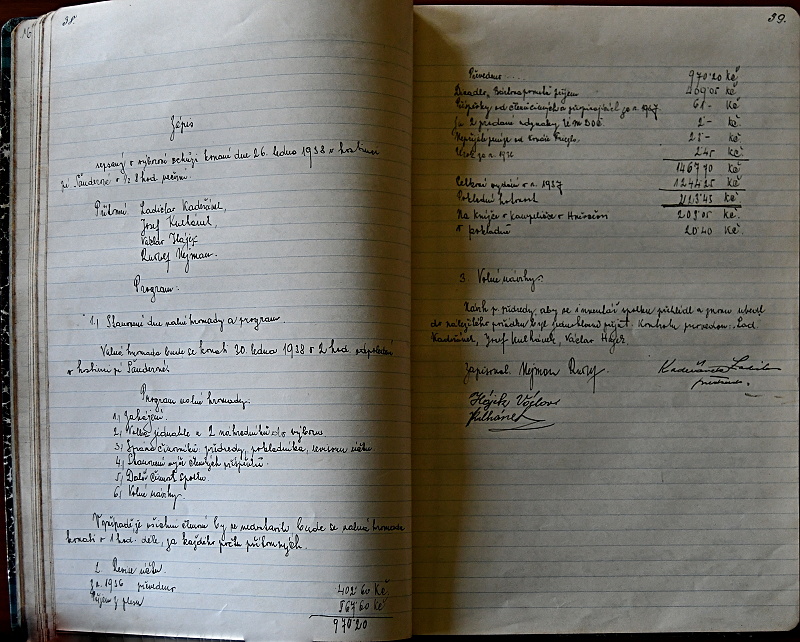 38.
Zápis
sepsaný o výborové schůzi konané dne 26. ledna 1938 v hostinci
pí Šanderné v ½ 8 hod večerní.
Přítomni Ladislav Kadeřábek,
Josef Kulhánek,
Václav Hájek
Rudolf Nejman.
Program:
1.) Stanovení dne valné hromady a program.
Valná hromada bude se konati 30. ledna 1938 o 2 hod. odpoledne
v hostinci pí Šanderné.
Program valné hromady:
1.) Zahájení.
2.) Volba jednatele a 2 náhradníků do výboru
3.) Zpráva činovníků předsedy, pokladníka, revisorů účtů.
4.) Stanovení výše členských příspěvků.
5.) Další činnost spolku.
6.) Volné návrhy.
V případě že všichni členové by se nedostavili bude se valná hromada
konati o 1 hod. déle, za každého počtu přítomných.
2. Revise účtů.
Z r. 1936 převedeno 402·60 Kč
Příjem z plesu 567·60 Kč
970·20
39.
Převedeno .... 970·20 Kč
Divadlo, příjem 409·05 Kč
Příspěvky od členů a za r. 1937 61·- Kč
Za 2 prodané odznaky 2·- Kč
25·- Kč
Úrok za r. 1936 Kč
1467·70 Kč
Celkové vydání v r. 1937 1244·25 Kč
Pokladní hotovost Kč
Na knížce v kampeličce v Kč
v pokladně 20·40 Kč
3. Volné návrhy.
Návrh p. předsedy, aby se inventář spolku přehlédl a znovu uvedl
do náležitého pořádku byl jednohlasně přijat. Kontrolu provedou: Lad.
Kadeřábek, Josef Kulhánek, Václav Hájek
Zapisoval. Nejman Rudolf. Kadeřábek Ladislav
předseda.
Hájek Václav
Kulhánek